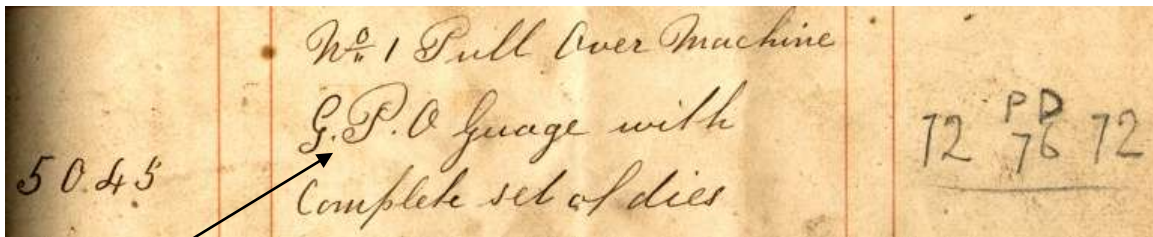 No 1 Pull Over Machine
G.P.O Guage with
5045
Complete set of dies
PD
72 76 72